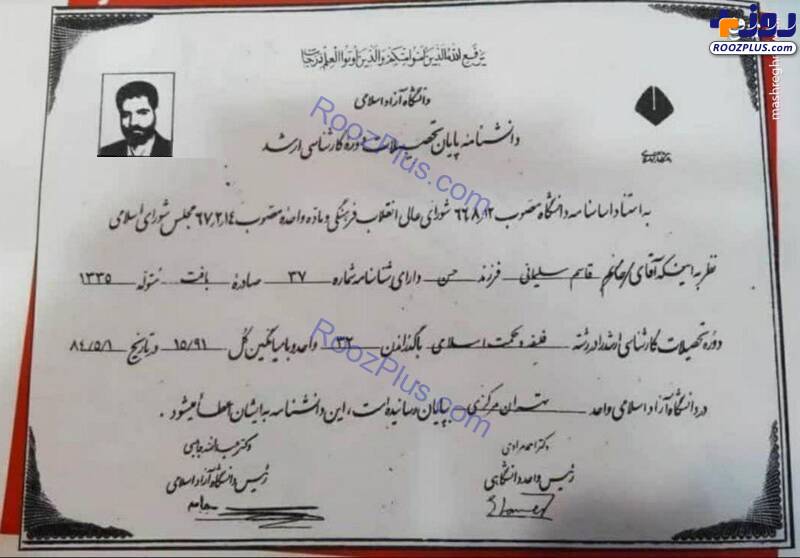 روز
ROOZPLUS.COM
mashregh
یرفع الله الذین آمنوا منکم والذین اوتوا العلم درجات
دانشگاه آزاد اسلامی
دانشنامه پایان تحصیلات دوره کارشناسی ارشد
به استناد اساسنامه دانشگاه مصوب ۶۶٫۸٫۱۲ شورای عالی انقلاب فرهنگی و ماده واحده مصوب ۶۷٫۲٫۱۴ مجلس شورای اسلامی
نظر به اینکه آقای/خانم قاسم سلیمانی فرزند حسن دارای شناسنامه شماره ۳۷ صادره بافت متولد ۱۳۳۵
دوره تحصیلات کارشناسی ارشد را در رشته فلسفه و حکمت اسلامی با گذراندن ۳۲ واحد و با میانگین کل ۱۵/۹۱ در تاریخ ۸۴/۵/۱
در دانشگاه آزاد اسلامی واحد تهران مرکزی بپایان رسانیده است، این دانشنامه به ایشان اعطا میشود.
دکتر احمد مرادی
رئیس واحد دانشگاهی
دکتر عبدالله جاسبی
رئیس دانشگاه آزاد اسلامی
RoozPlus.com
RoozPlus.com